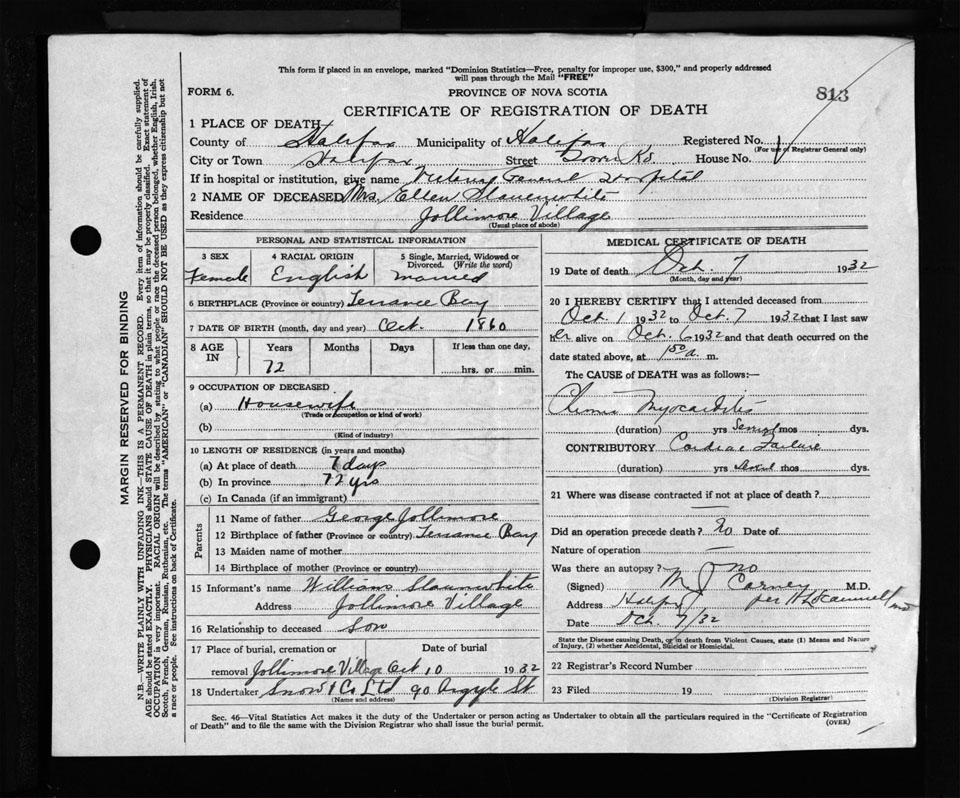 This form if placed in an envelope, marked "Dominion Statistics—Free, penalty for improper use, $300," and properly addressed
will pass through the Mail "FREE"
FORM 6.
PROVINCE OF NOVA SCOTIA
813
CERTIFICATE OF REGISTRATION OF DEATH
1 PLACE OF DEATH
County of Halifax Municipality of Halifax Registered No.
(For use of Registrar General only)
City or Town Halifax Street House No.
If in hospital or institution, give name Victoria General Hospital
2 NAME OF DECEASED Mrs. Ellen Slaunwhite
Residence Jollimore Village
(Usual place of abode)
PERSONAL AND STATISTICAL INFORMATION
3 SEX 4 RACIAL ORIGIN 5 Single, Married, Widowed or
Divorced. (Write the word)
Female English married
6 BIRTHPLACE (Province or country) Terrance Bay
7 DATE OF BIRTH (month, day and year) Oct. 1860
8 AGE IN Years Months Days If less than one day,
72 hrs. or min.
9 OCCUPATION OF DECEASED
(a) Housewife
(Trade or occupation or kind of work)
(b)
(Kind of industry)
10 LENGTH OF RESIDENCE (in years and months)
(a) At place of death 7 days
(b) In province 72 yrs
(c) In Canada (if an immigrant)
Parents
11 Name of father George Jollimore
12 Birthplace of father (Province or country) Terrance Bay
13 Maiden name of mother
14 Birthplace of mother (Province or country)
15 Informant's name William Slaunwhite
Address Jollimore Village
16 Relationship to deceased Son
17 Place of burial, cremation or Date of burial
removal Jollimore Village Oct 10 1932
18 Undertaker Snow & Co Ltd 90 Argyle St
(Name and address)
MEDICAL CERTIFICATE OF DEATH
19 Date of death Oct. 7 1932
(Month, day and year)
20 I HEREBY CERTIFY that I attended deceased from
Oct. 1 1932 to Oct. 7 1932 that I last saw
er alive on Oct. 6 1932 and that death occurred on the
date stated above, at 1 50 a. m.
The CAUSE of DEATH was as follows:—
Chronic Myocarditis
(duration) yrs Several mos dys.
CONTRIBUTORY Cardiac Failure
(duration) yrs mos dys.
21 Where was disease contracted if not at place of death?
—
Did an operation precede death? No Date of
Nature of operation —
Was there an autopsy? no
(Signed) M J Carney M.D.
Address Halifax per
Date Oct. 7/32
State the Disease causing Death, or in death from Violent Causes, state (1) Means and Nature
of Injury, (2) whether Accidental, Suicidal or Homicidal.
22 Registrar's Record Number
23 Filed 19
(Division Registrar)
Sec. 46—Vital Statistics Act makes it the duty of the Undertaker or person acting as Undertaker to obtain all the particulars required in the "Certificate of Registration
of Death" and to file the same with the Division Registrar who shall issue the burial permit.
(OVER)
MARGIN RESERVED FOR BINDING
N.B.—WRITE PLAINLY WITH UNFADING INK—THIS IS A PERMANENT RECORD. Every item of information should be carefully supplied.
AGE should be stated EXACTLY. PHYSICIANS should STATE CAUSE OF DEATH in plain terms, so that it may be properly classified. Exact statement of
OCCUPATION is very important. RACIAL ORIGIN will be described by stating to what people or race the deceased person belonged, whether English, Irish,
Scotch, French, German, Russian, Ruthenian, etc. The terms "AMERICAN" or "CANADIAN" SHOULD NOT BE USED as they express citizenship but not
a race or people. See instructions on back of Certificate.